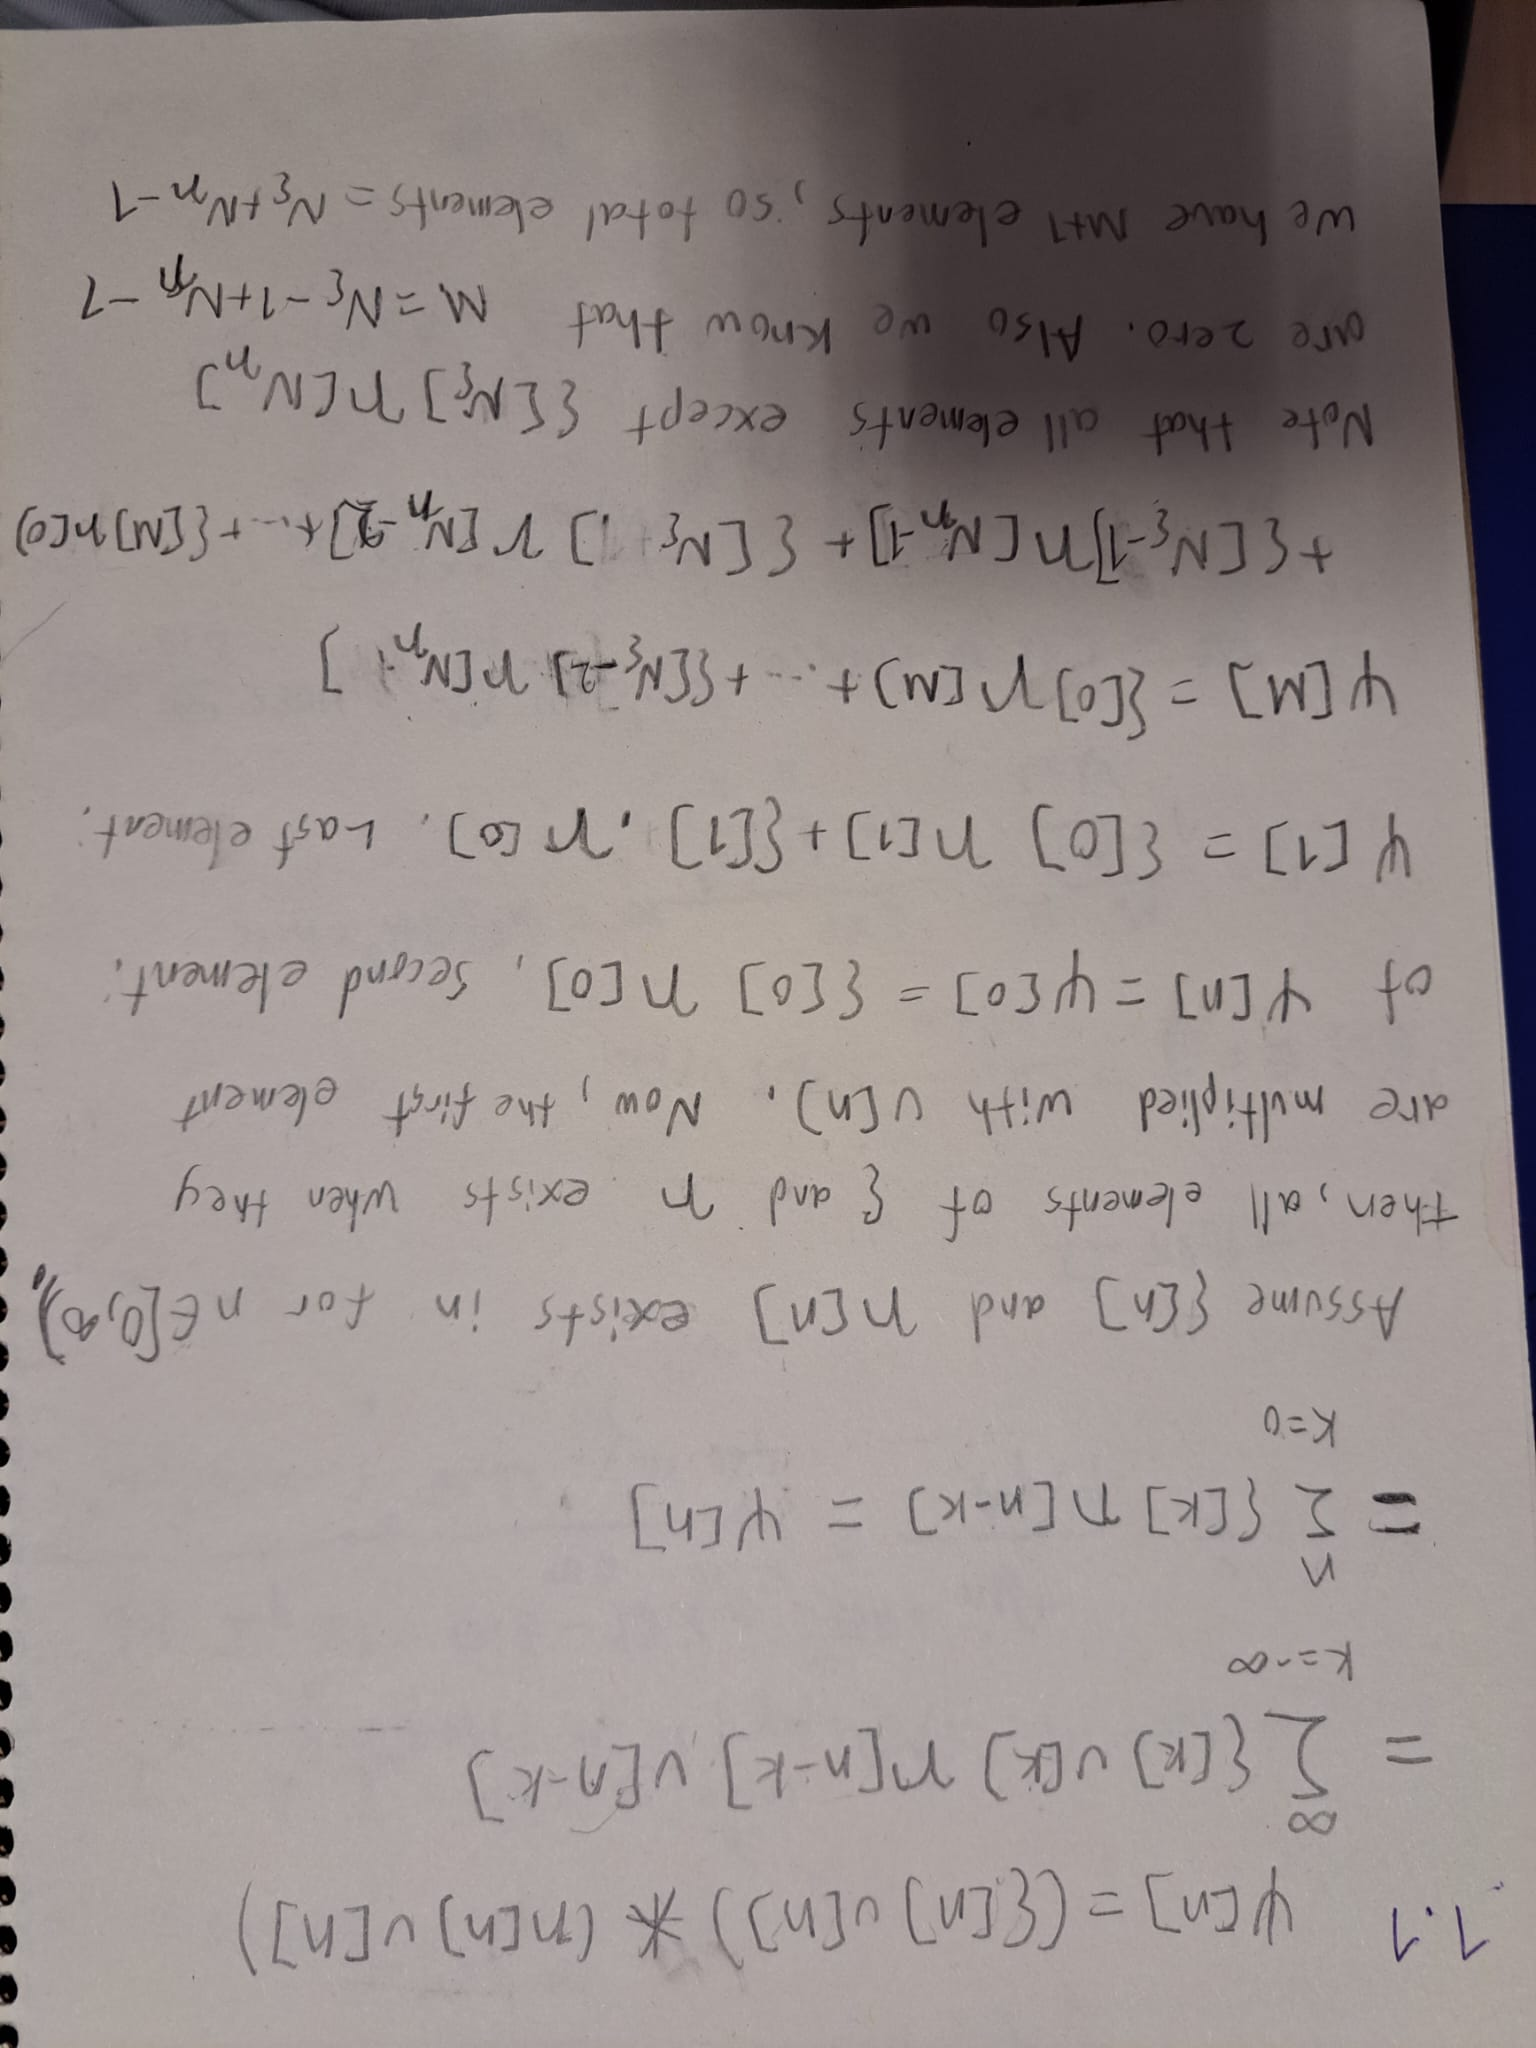 1.1 ψ[n] = (ξ[n] u[n]) * (η[n] u[n])
∞
= Σ ξ[k] u[k] η[n-k] u[n-k]
k=-∞
n
= Σ ξ[k] η[n-k] = ψ[n]
k=0
Assume ξ[n] and η[n] exists in for n∈[0,∞),
then, all elements of ξ and η exists when they
are multiplied with u[n]. Now, the first element
of ψ[n] = ψ[0] = ξ[0] η[0], second element:
ψ[1] = ξ[0] η[1] + ξ[1] . η[0]. Last element.
ψ[M] = ξ[0] η[M] + ... + ξ[Nξ-2] η[Nη]
+ ξ[Nξ-1] η[Nη-1] + ξ[Nξ] η[Nη-2] + ... + ξ[M] η[0]
Note that all elements except ξ[Nξ] η[Nη]
are zero. Also we know that M = Nξ-1+Nη-1
we have M+1 elements, so total elements = Nξ+Nη-1